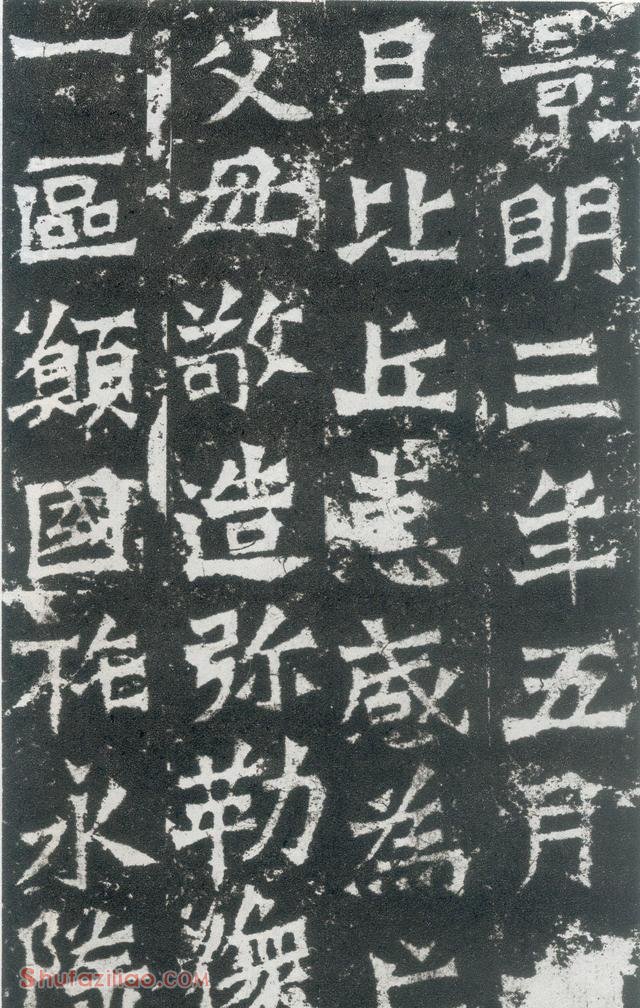 景明三年五月
日比丘惠感為亡
父母敬造弥勒像
一區願國祚永隆
Shufaziliao.COM